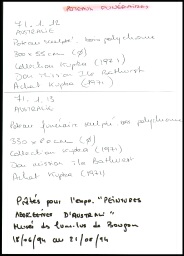 POTEAUX FUNÉRAIRES
71.1.12
AUSTRALIE
Poteau sculpté, bois polychrome
300 x 55 cm (Ø)
Collection Kupka (1971)
Don mission Ile Bathurst
Achat Kupka (1971)
71.1.13
AUSTRALIE
Poteau funéraire sculpté, bois polychrome
330 x 20 cm (Ø)
Collection Kupka (1971)
Don mission Ile Bathurst
Achat Kupka (1971)
Prêtés pour l'expo. "PEINTURES
ABORIGENES D'AUSTRALIE"
Musée des Tumulus de Bougon
18/06/94 au 21/08/94